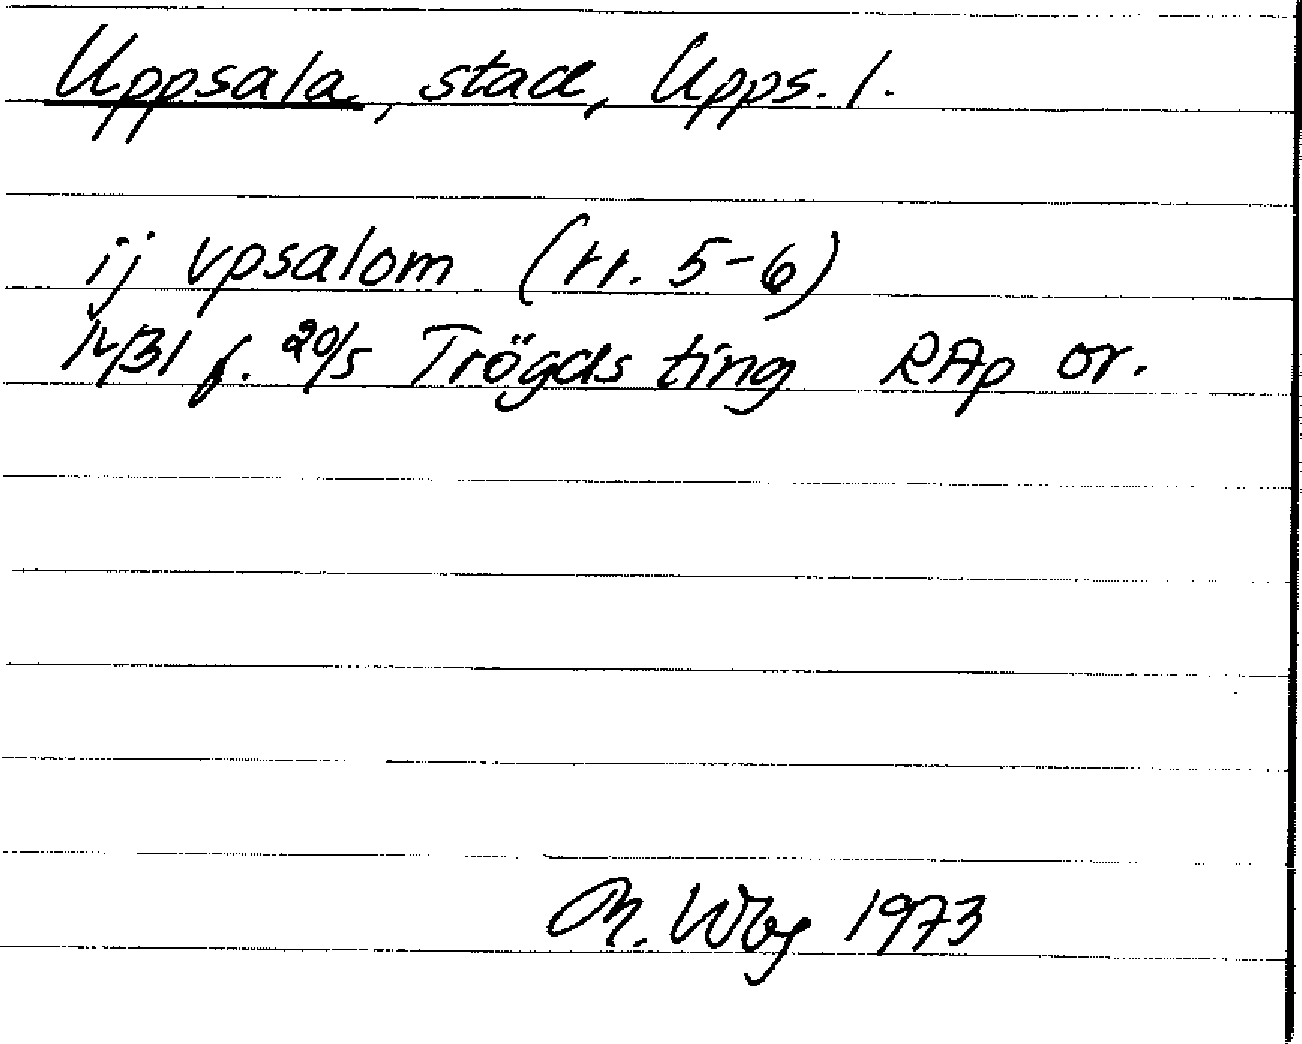 Uppsala, stad, Upps. l.
ij vpsalom (rr. 5-6)
1431 f. 20/5 Trögds ting RAp or.
M. Wbg 1973